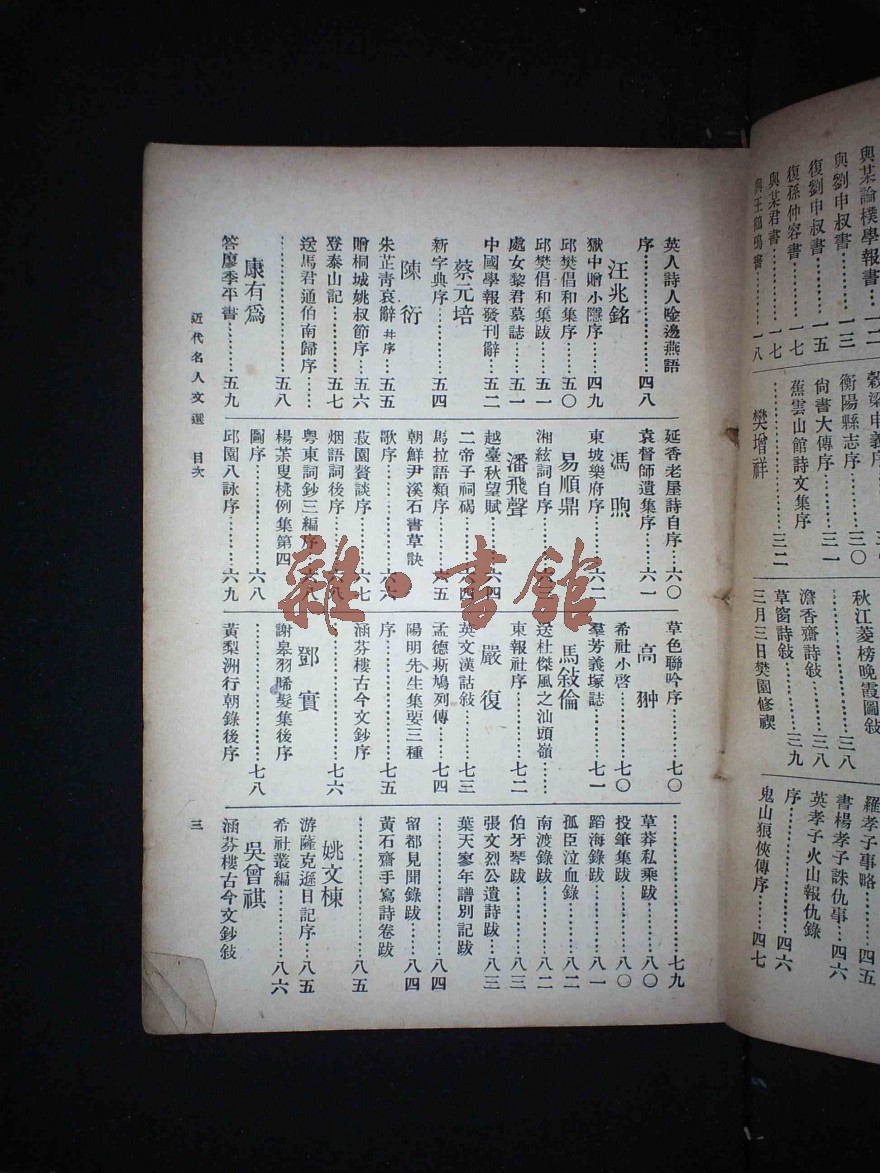 與某論樸學報書……一二
與劉申叔書……一三
復劉申叔書……一五
復孫仲容書……一七
與某君書……一七
與王鶴鳴書……一八
穀梁申義序
衡陽縣志序……三〇
尙書大傳序……三一
蕉雲山館詩文集序
……三二
樊增祥
秋江菱榜晚霞圖敍
……三八
澹香齋詩敍……三八
草窗詩敍……三九
三月三日樊園修禊
羅孝子事略……四五
書楊孝子誅仇事…四六
英孝子火山報仇錄
序……四六
鬼山狼俠傳序……四七
英人詩人唫邊燕語
序……四八
汪兆銘
獄中贈小隱序……四九
邱樊倡和集序……五〇
邱樊倡和集跋……五一
處女黎君墓誌……五一
中國學報發刊辭…五二
蔡元培
新字典序……五四
陳衍
朱芷靑哀辭幷序…五五
贈桐城姚叔節序…五六
登泰山記……五七
送馬君通伯南歸序…
……五八
康有爲
答廖季平書……五九
延香老屋詩自序…六〇
袁督師遺集序……六一
馮煦
東坡樂府序……六二
易順鼎
湘絃詞自序……六三
潘飛聲
越臺秋望賦……六四
二帝子祠碣……六四
馬拉語類序……六五
朝鮮尹溪石書草訣
歌序……六六
菽園贅談序……六七
烟語詞後序……六八
粤東詞鈔三編序…六八
楊茶叟桃例集第四
圖序……六八
邱園八詠序……六九
草色聯吟序……七〇
高翀
希社小啓……七〇
羣芳義塚誌……七一
馬敍倫
送杜傑風之汕頭嶺……
東報社序……七二
嚴復
英文漢詁敍……七三
孟德斯鳩列傳……七四
陽明先生集要三種
序……七五
涵芬樓古今文鈔序
……七六
鄧實
謝皋羽晞髮集後序
……七八
黃梨洲行朝錄後序
……七九
草莽私乘跋……八〇
投筆集跋……八〇
蹈海錄跋……八一
孤臣泣血錄……八二
南渡錄跋……八二
伯牙琴跋……八三
張文烈公遺詩跋…八三
葉天寥年譜別記跋
……八四
留都見聞錄跋……八四
黃石齋手寫詩卷跋
……八五
姚文棟
游薩克遜日記序…八五
希社叢編……八六
吳曾祺
涵芬樓古今文鈔敍
近代名人文選 目次
三
雜·書館